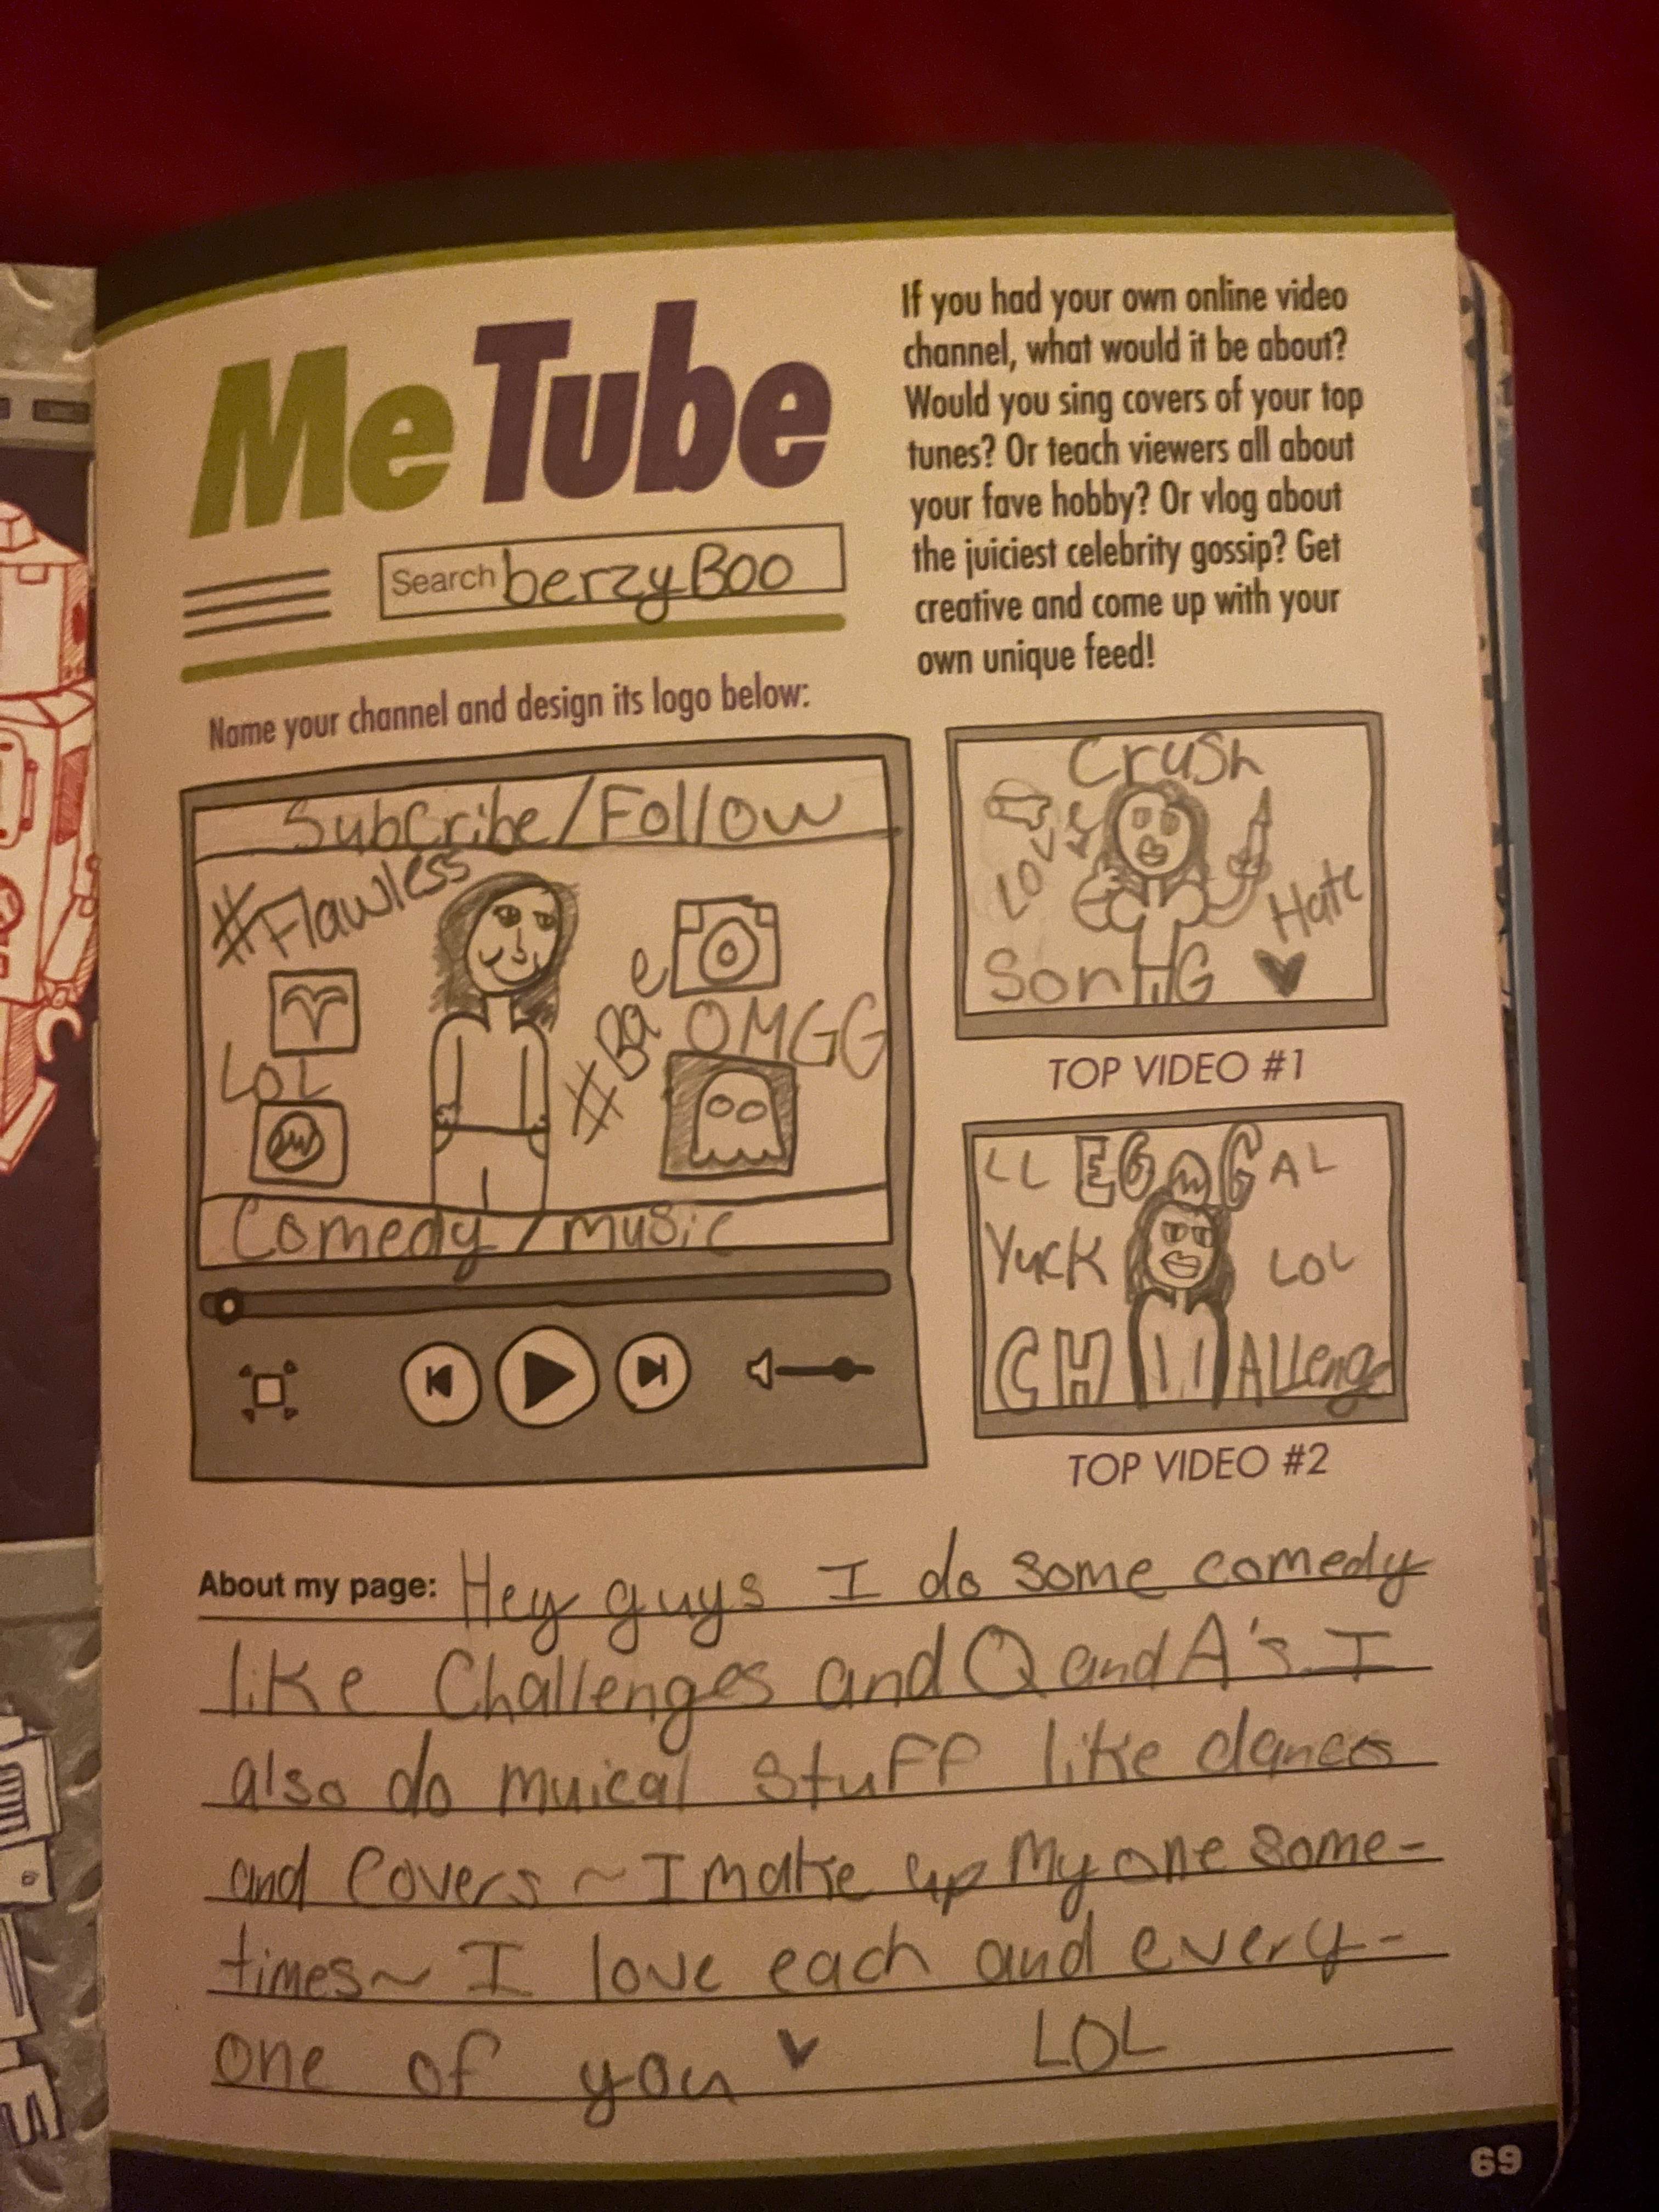 MeTube
If you had your own online video
channel, what would it be about?
Would you sing covers of your top
tunes? Or teach viewers all about
your fave hobby? Or vlog about
the juiciest celebrity gossip? Get
creative and come up with your
own unique feed!
Search berzyBoo
Name your channel and design its logo below:
Subcribe/Follow
#Flawless
#Bae
OMGG
LOL
Comedy/music
Crush
Love
Hate
Song
TOP VIDEO #1
LL EGGAL
Yuck
LOL
CHALLenge
TOP VIDEO #2
About my page: Hey guys I do some comedy
like Challenges and Q and A's. I
also do muical stuff like dances
and Covers ~ I make up My one some-
times ~ I love each and every-
one of you LOL
69